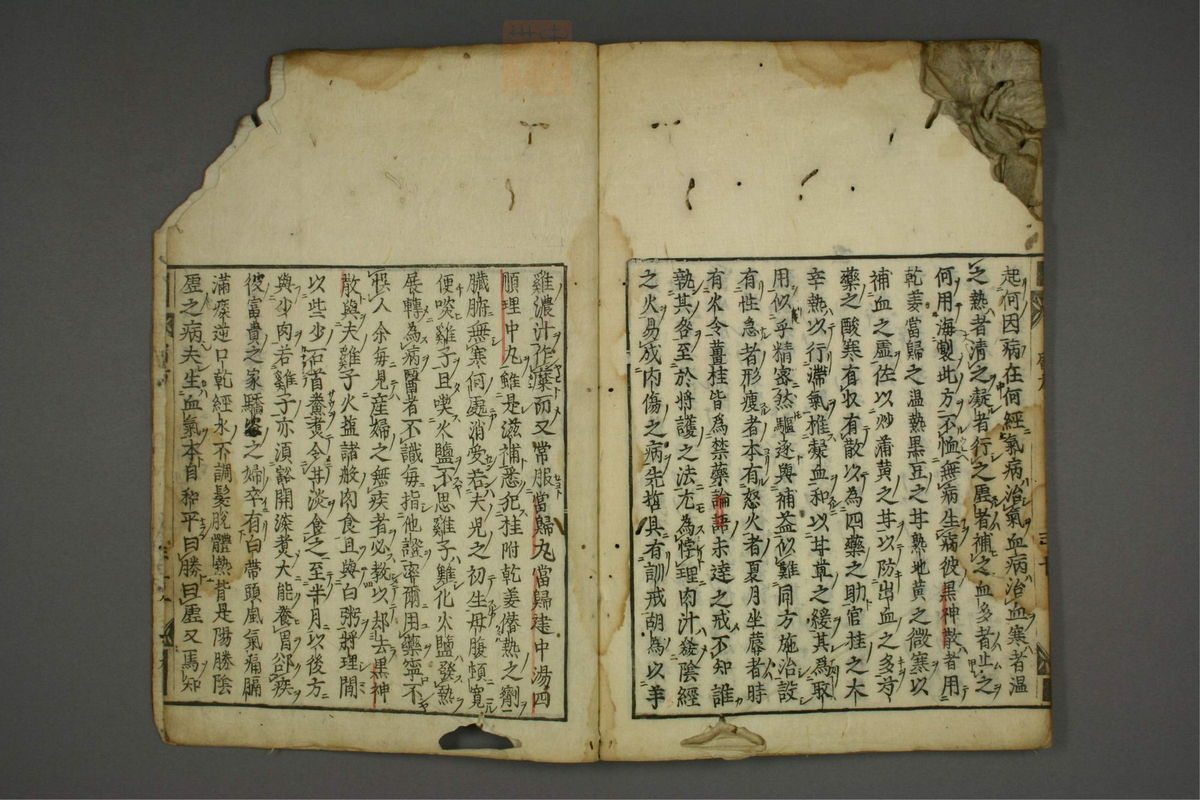 起何因病在何經氣病治氣血病治血寒者温
之熱者清之凝者行之虛者補之血多者止之
何用海製此方不恤無病生病彼黑神散者用
乾姜當歸之温熱黑豆之甘熟地黃之微寒以
補血之虛佐以炒蒲黃之甘以防出血之多芍
藥之酸寒有收有散以為四藥之助官桂之大
辛熱以行滯氣推凝血和以甘草之緩其為取
用似乎精密然驅逐與補益似難同方施治設
有性急者形瘦者本有怒火者夏月坐蓐者時
有火令薑桂皆為禁藥論語未達之戒不知誰
執其咎至於將護之法尤為悖理肉汁發陰經
之火易成內傷之病先哲具有訓戒胡為以羊
雞濃汁作藥而又常服當歸丸當歸建中湯四
順理中丸雖是滋補悉犯桂附乾姜僭熱之劑
臟腑無寒何處消受若夫兒之初生母腹頓寬
便啖雞子且喫火鹽不思雞子難化火鹽發熱
展轉為病醫者不識每指他證率爾用藥寧不
悞人余每見產婦之無疾者必教以却去黑神
散與夫雞子火鹽諸般肉食且與白粥將理間
以些少石首鯗煮令甘淡食之至半月以後方
與少肉若雞子亦須豁開滾煮大能養胃却疾
彼富貴之家驕恣之婦卒有白帶頭風氣痛膈
滿痰逆口乾經水不調髮脫體熱皆是陽勝陰
虛之病夫生血氣本自和平曰勝曰虛又焉知